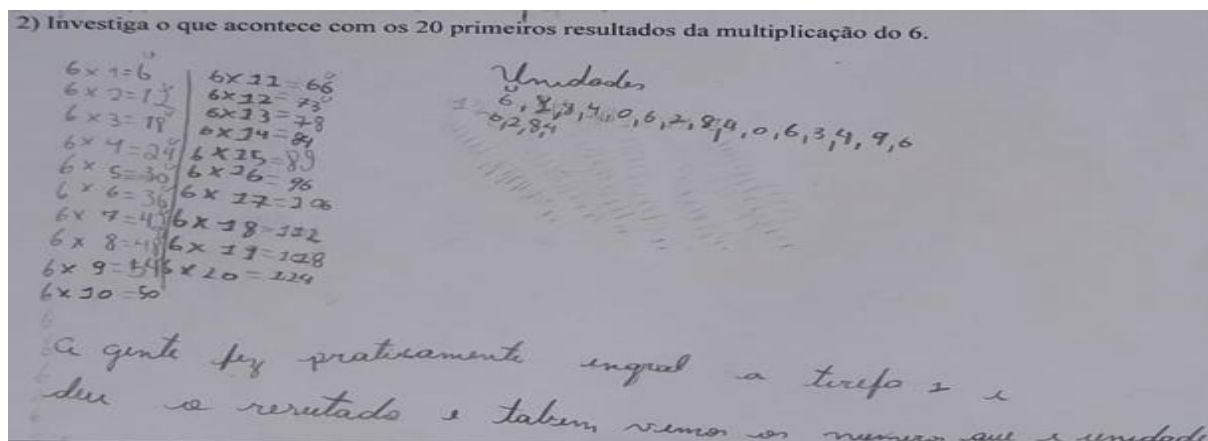 2) Investiga o que acontece com os 20 primeiros resultados da multiplicação do 6.
6 x 1=6
6 x 2=12
6 x 3=18
6 x 4=24
6 x 5=30
6 x 6=36
6 x 7=42
6 x 8=48
6 x 9=54
6 x 10=50
6 x 11=66
6 x 12=73
6 x 13=78
6 x 14=84
6 x 15=89
6 x 16=96
6 x 17=106
6 x 18=112
6 x 19=118
6 x 20=124
Unidades
6, 2, 8, 4, 0, 6, 2, 8, 4, 0, 6, 3, 4, 9, 6
6, 2, 8, 4
a gente fez praticamente ingual a tirefa 1 e
deu o resutado e tabem vemos os numero que e unidade